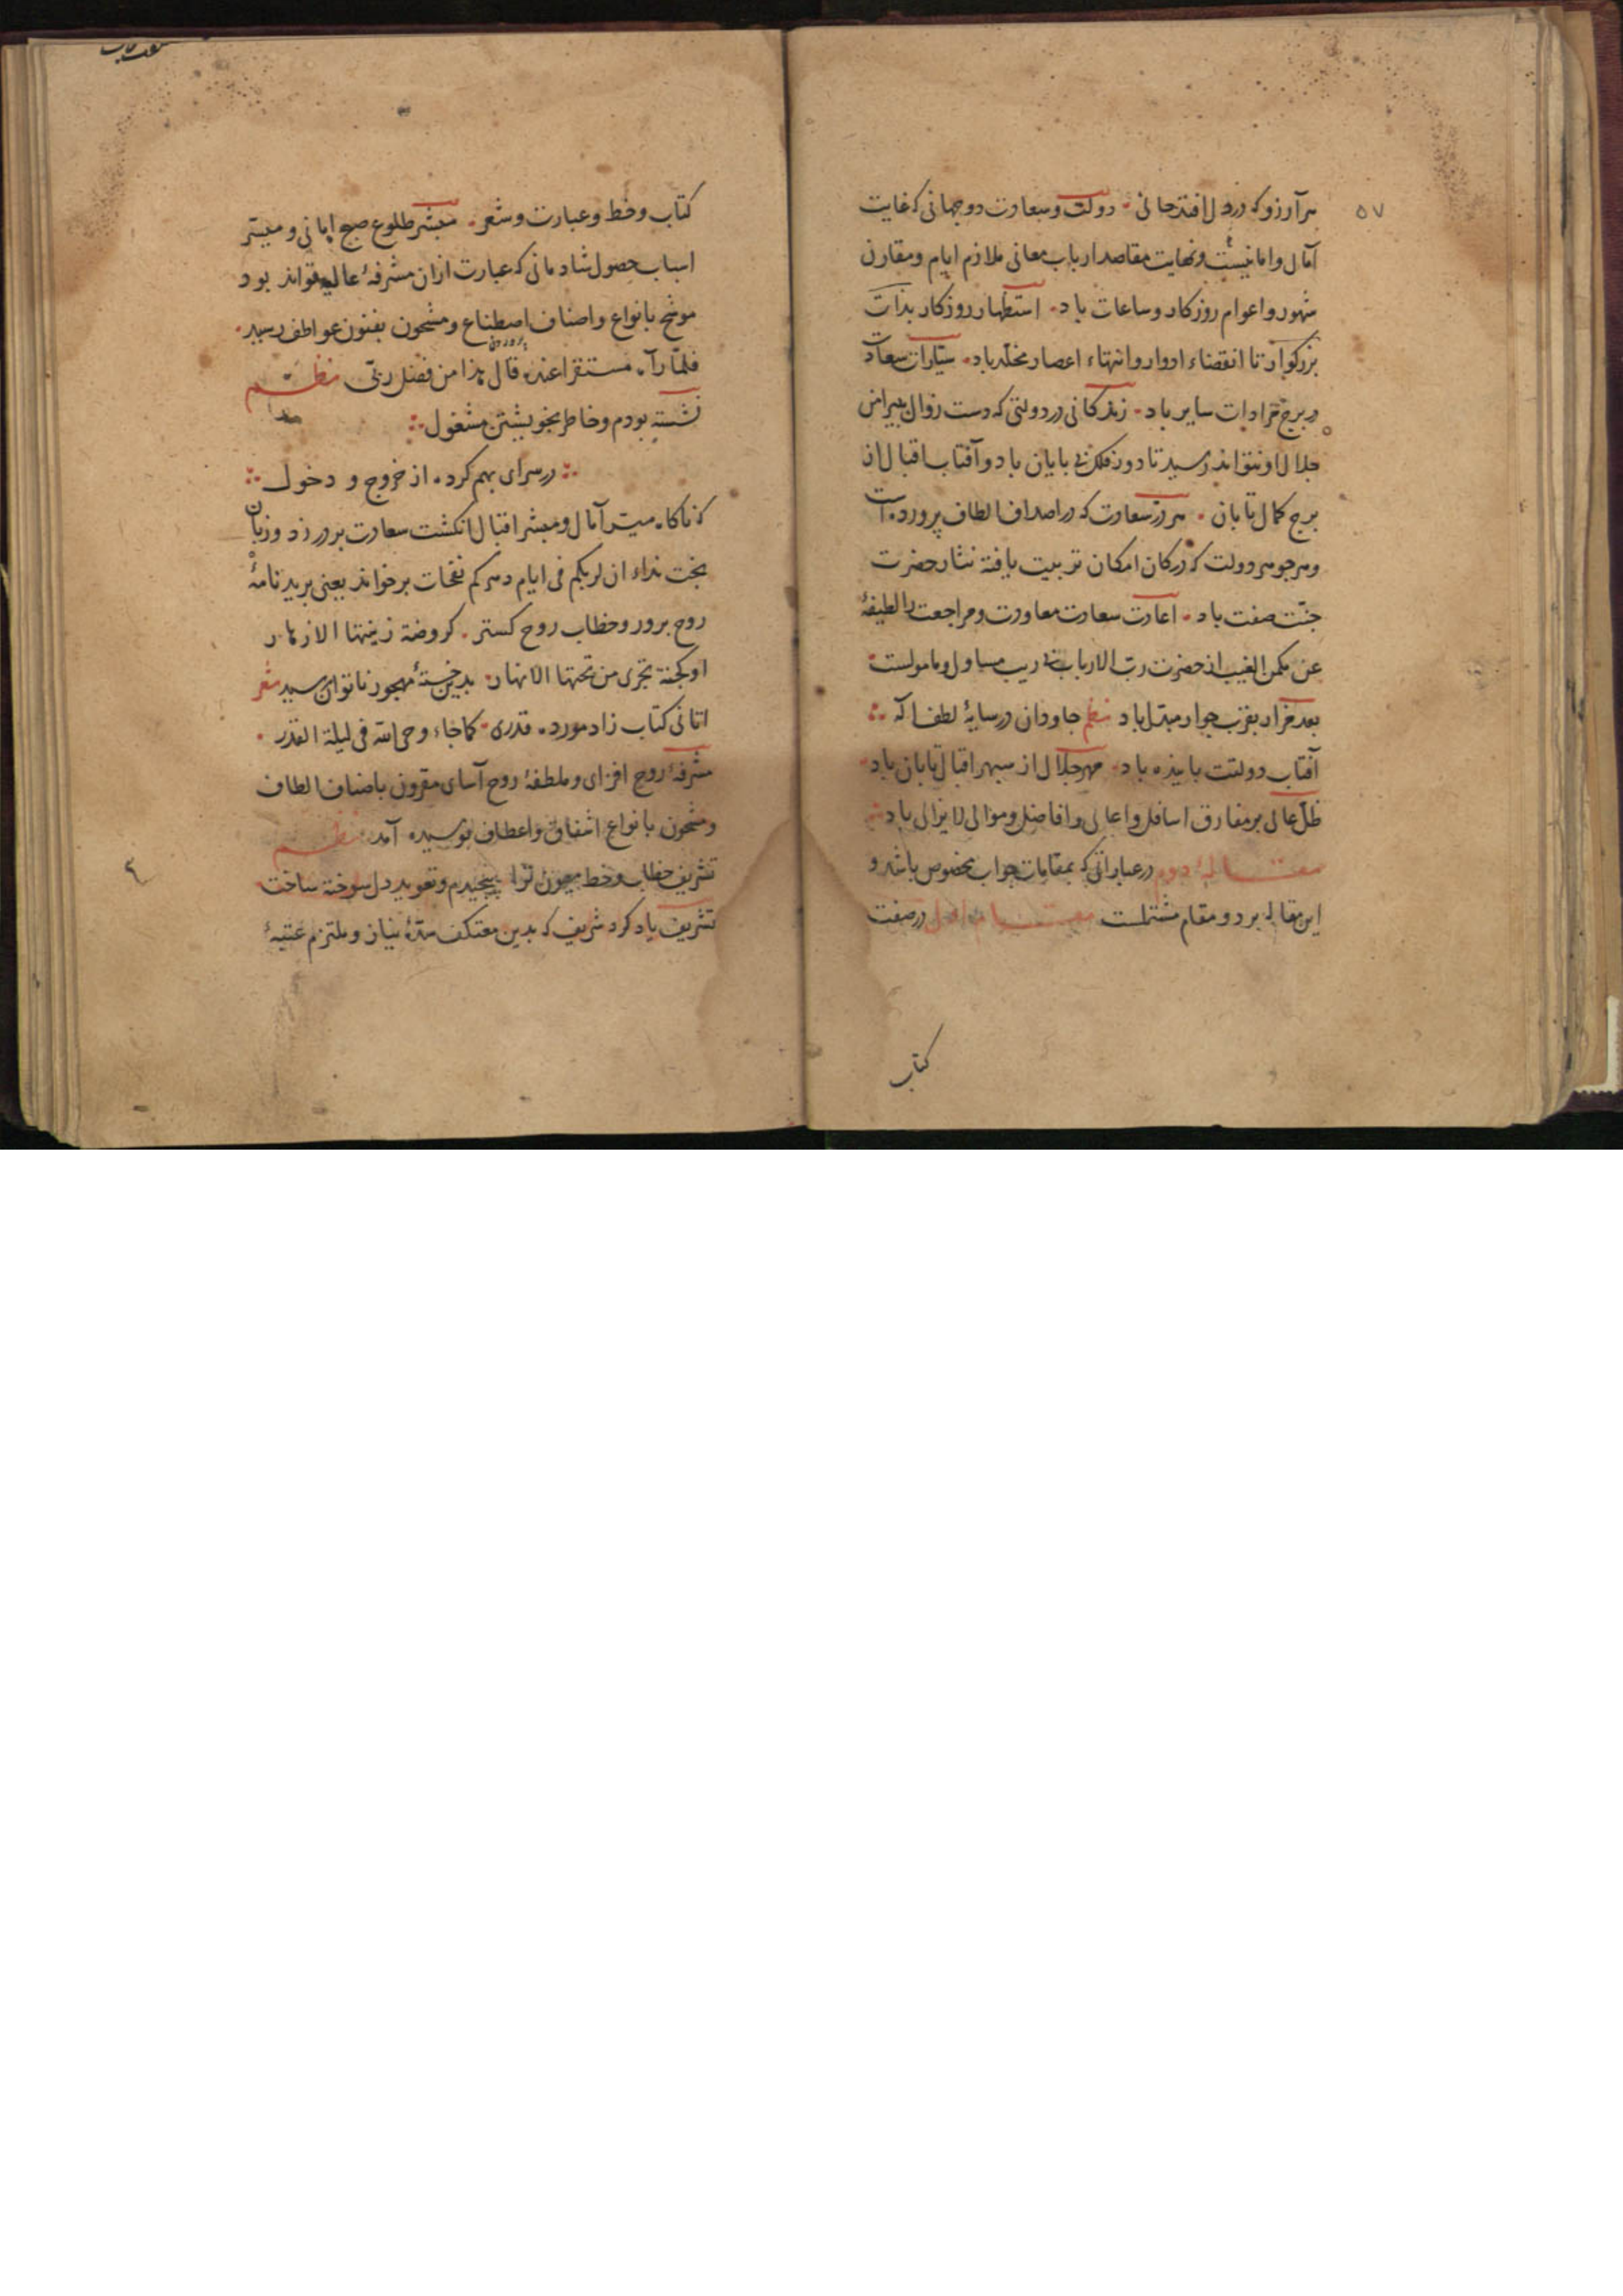 ۵۷
هر آرزو که در دل افتد حالی دولت و سعادت دو جهانی که غایت
آمال و امانیست و نهایت مقاصد ارباب معانی ملازم ایام و مقارن
شهور و اعوام روزکار و ساعات باد استظهار روزکار بذات
بزرکوار تا انقضاء ادوار و انتهاء اعصار مخلد باد سیارات سعادت
در برج مرادات سایر باد زندکانی در دولتی که دست زوال بپیرامن
جلال او نتواند رسید تا دور فلک بی پایان باد و آفتاب اقبال از
برج کمال تابان هر در سعادت که در اصداف الطاف پرورده است
و هر جوهر دولت که در کان امکان تربیت یافته نثار حضرت
جنت صفت باد اعادت سعادت معاودت و مراجعت را لطیفهٔ
عن مکمن الغیب از حضرت رب الارباب بی ریب مسئاول و مامولست
بعد مزار بقرب جوار مبتل باد نظم جاودان در سایهٔ لطف اله
آفتاب دولتت پاینده باد مهر جلال از سپهر اقبال تابان باد
ظل عالی بر مفارق اسافل و اعالی و افاضل و موالی لایزالی باد
مقالهٔ دوم در عباراتی که بمقامات جواب مخصوص باشد و
این مقاله بر دو مقام مشتملست مقام اول در صفت
کتاب
کتاب و خط و عبارت و شعر مبشر طلوع صبح امانی و میسر
اسباب حصول شادمانی که عبارت ازان مشرفهٔ عالیه تواند بود
موشح بانواع و اصناف اصطناع و مشحون بفنون عواطف رسید
فلما رآه مستقرا عنده قال هذا من فضل ربی نظم
نشسته بودم و خاطر بخویشتن مشغول
در سرای بهم کرده از خروج و دخول
که ناکاه میسر آمال و مبشر اقبال انکشت سعادت بر در زد و زبان
بخت نداء ان لربکم فی ایام دهرکم نفحات برخواند یعنی برید نامهٔ
روح پرور و خطاب روح کستر کروضة زینتها الازهار
او کجنة تجری من تحتها الانهار بدین خستهٔ مهجور ناتوان رسید شعر
اتانی کتاب زاد مورده قدری کما جاء وحی الله فی لیلة القدر
مشرفهٔ روح افزای و ملطفهٔ روح آسای مقرون باصناف الطاف
و مشحون بانواع اشفاق و اعطاف بوسیده آمد نظم
تشریف خطاب و خط میمون ترا پیچیدم و تعوید دل سوخته ساخت
تشریف یاد کرد شریف که بدین معتکف سدهٔ نیاز و ملتزم عتبهٔ